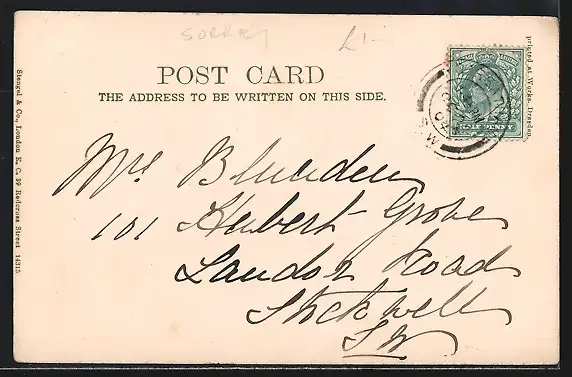 SORRY
£1-
POST CARD
THE ADDRESS TO BE WRITTEN ON THIS SIDE.
Stengel & Co., London E. C. 39 Redcross Street 14315
printed at Works, Dresden
HALF PENNY
S.W
Mrs Blunden
101 Herbert Grove
Landor Road
Stockwell
SW